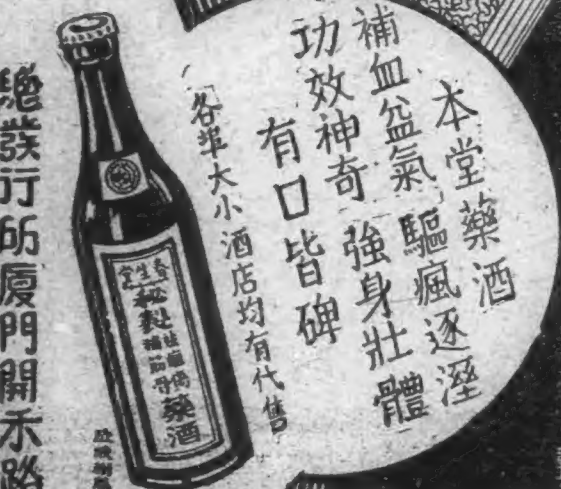 本堂藥酒
補血益氣 驅瘋逐溼
功效神奇 強身壯體
有口皆碑
各埠大小酒店均有代售
春生堂
秘製
祛瘋傷
補筋骨
藥酒
總發行所廈門開禾路